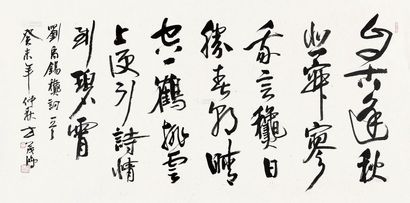 自古逢秋
悲寂寥
我言龝日
勝春朝晴
空一鶴排雲
上便引詩情
到碧霄
劉禹錫龝詞一首
癸未年仲秋